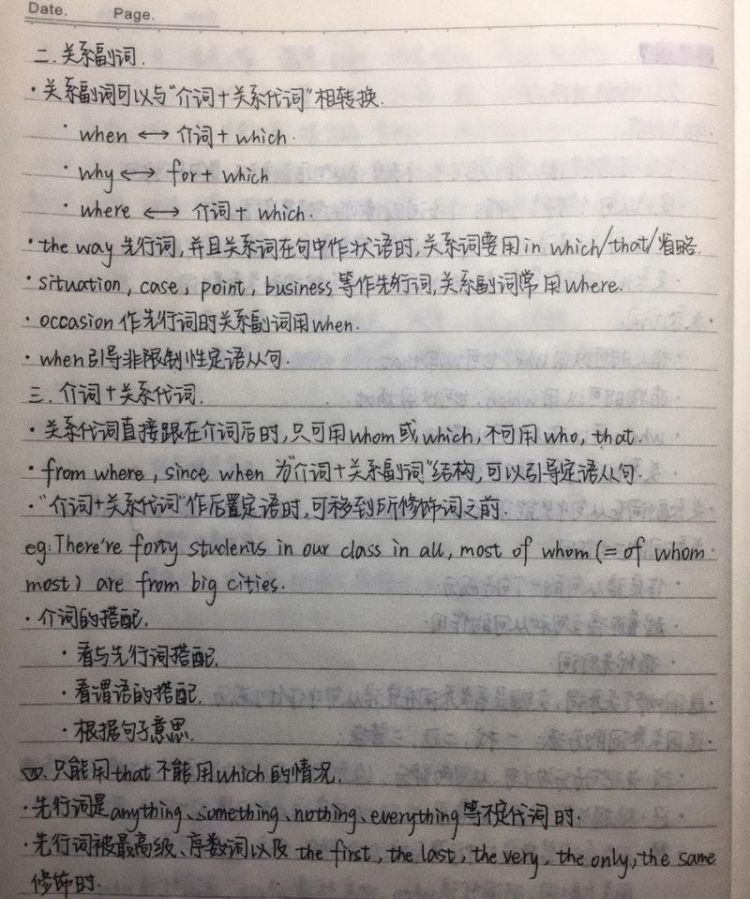 Date. Page.
二.关系副词.
·关系副词可以与"介词+关系代词"相转换.
·when ⟷ 介词+which.
·why ⟷ for+which
·where ⟷ 介词+which.
·the way 先行词,并且关系词在句中作状语时,关系词要用in which/that/省略.
·situation, case, point, business等作先行词,关系副词常用where.
·occasion 作先行词时关系副词用when.
·when引导非限制性定语从句.
三.介词+关系代词.
·关系代词直接跟在介词后时,只可用whom或which,不可用who, that.
·from where, since when 为"介词+关系副词"结构,可以引导定语从句.
·"介词+关系代词"作后置定语时,可移到所修饰词之前.
eg:There're forty students in our class in all, most of whom (= of whom
most) are from big cities.
·介词的搭配.
·看与先行词搭配.
·看谓语的搭配.
·根据句子意思.
四.只能用that不能用which的情况.
·先行词是anything、something、nothing、everything等不定代词时.
·先行词被最高级、序数词以及 the first, the last, the very, the only, the same
修饰时.